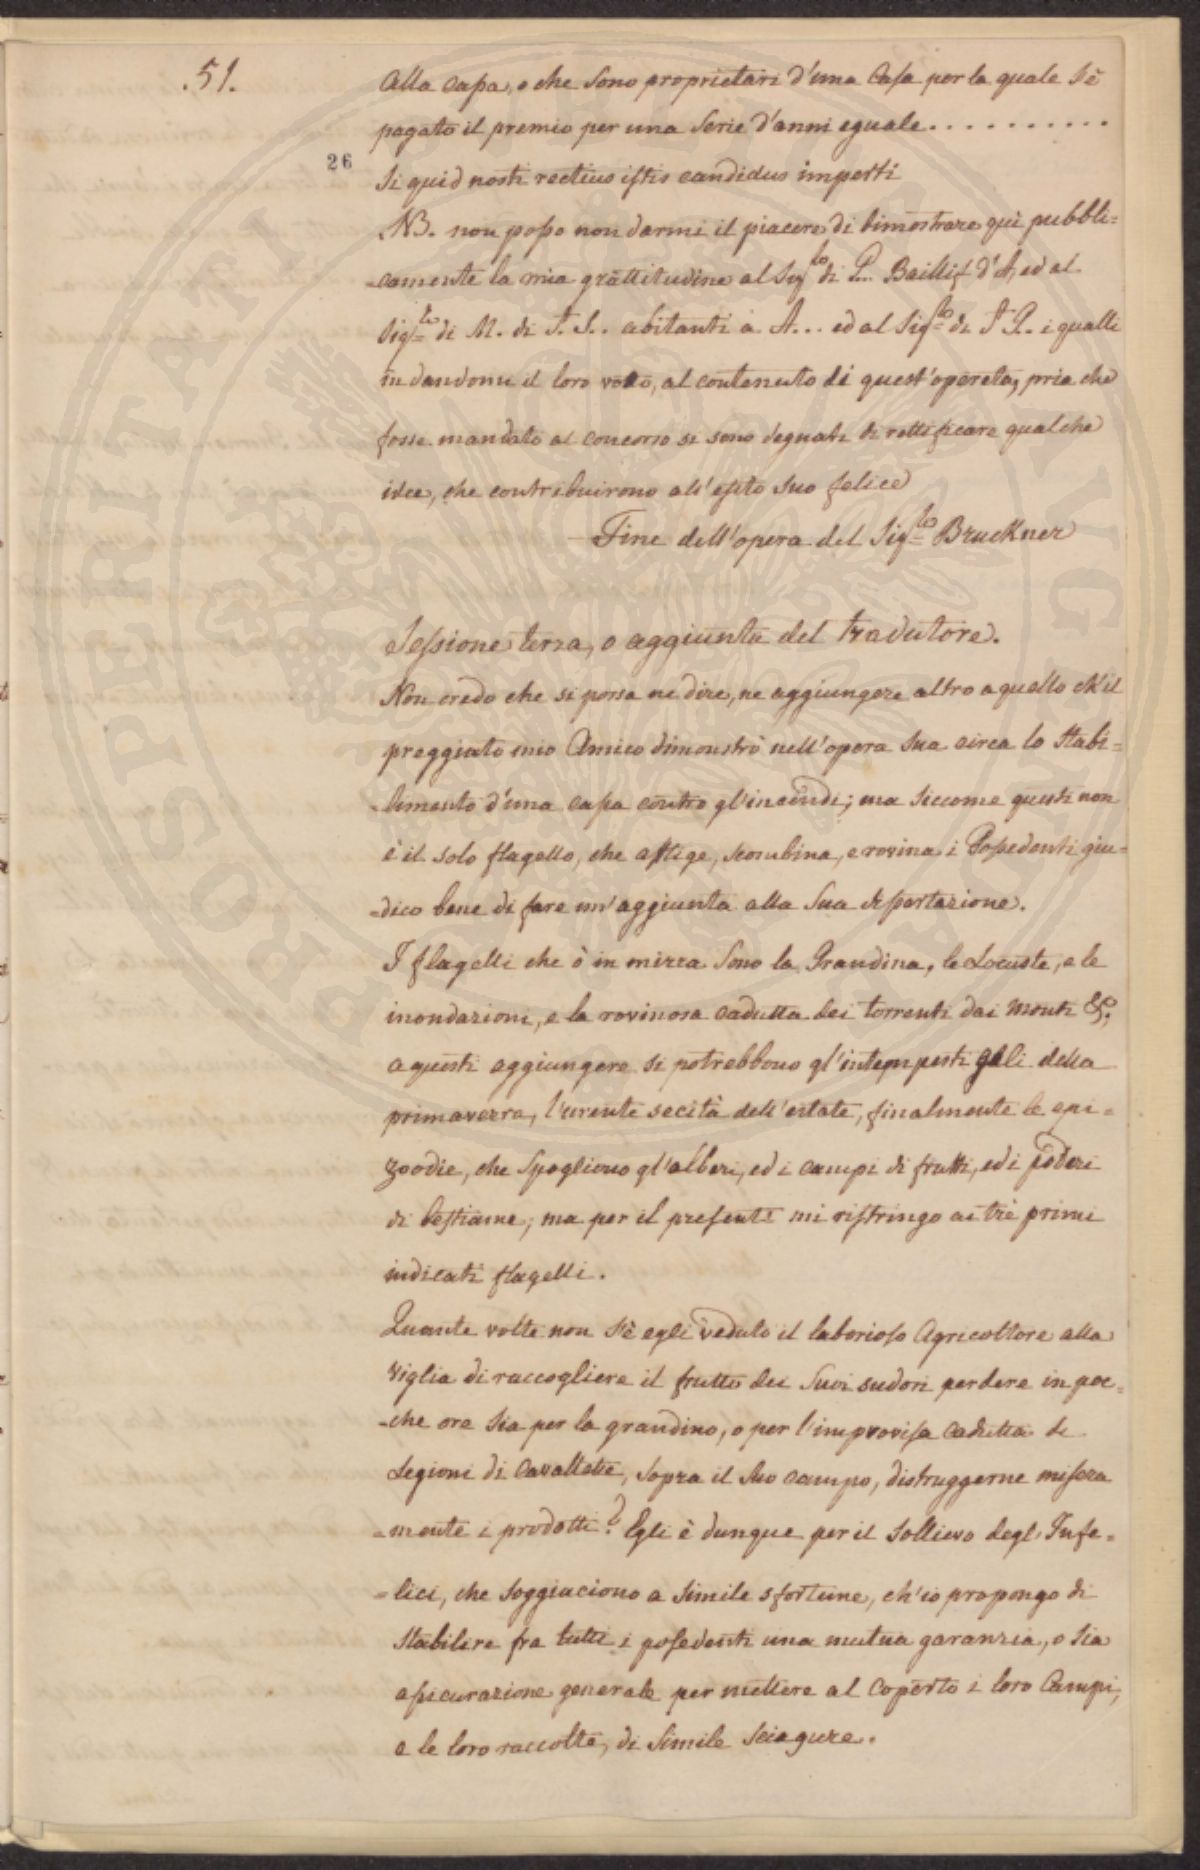 .51.
alla Cassa, o che sono proprietari d'una Casa per la quale s'è
pagato il premio per una serie d'anni eguale..........
26
Si quid nosti rectius istis candidus imperti
NB. non posso non darmi il piacere di dimostrare quì pubbli=
=camente la mia grattitudine al Sig.re di P... Baillif d'A, ed al
Sig.re di M. di S. S.. abitanti a A... ed al Sig.re de S P.. i qualli
in dandomi il loro votto, al contenuto di quest'opereta, pria che
fosse mandato al concorso si sono degnati di rettificare qualche
idee, che contribuirono all'esito suo felice
Fine dell'opera del Sig.re Bruckner
Sessione terza, o aggiunta del tradutore.
Non credo che si possa ne dire, ne aggiungere altro a quello ch'il
preggiato mio Amico dimonstrò nell'opera sua circa lo stabi=
=limento d'una cassa contro gl'incendi; ma siccome questi non
è il solo flagello, che aflige, scombina, e rovina i Possedenti giu=
=dico bene di fare un'aggiunta alla sua dissertazione.
I flagelli che ò in mirra sono la Grandina, le Locuste, e le
inondazioni, e la rovinosa cadutta dei torrenti dai Monti &c;
a questi aggiungere si potrebbono gl'intempesti geli della
primaverra, l'urente secità dell'estate, finalmente le epi=
zoodie, che spogliono gl'alberi, ed i campi di frutti, ed i poderi
di bestiame; ma per il presente mi ristringo ai trè primi
indicati flagelli.
Quante volte non s'è egli veduto il laborioso Agricoltore alla
viglia di raccogliere il frutto dei suoi sudori perdere in poc=
=che ore sia per la grandino, o per l'improvisa cadutta de
Legioni di Cavallette, sopra il suo campo, distruggerne misera
=mente i prodotti? Egli è dunque per il sollievo degl'Infe=
=lici, che soggiaciono a simile sfortune, ch'io propongo di
stabilire fra tutti i possedenti una mutua garanzia, o sia
assicurazione generale per mettere al coperto i loro Campi,
e le loro raccolte, di simile sciagure.